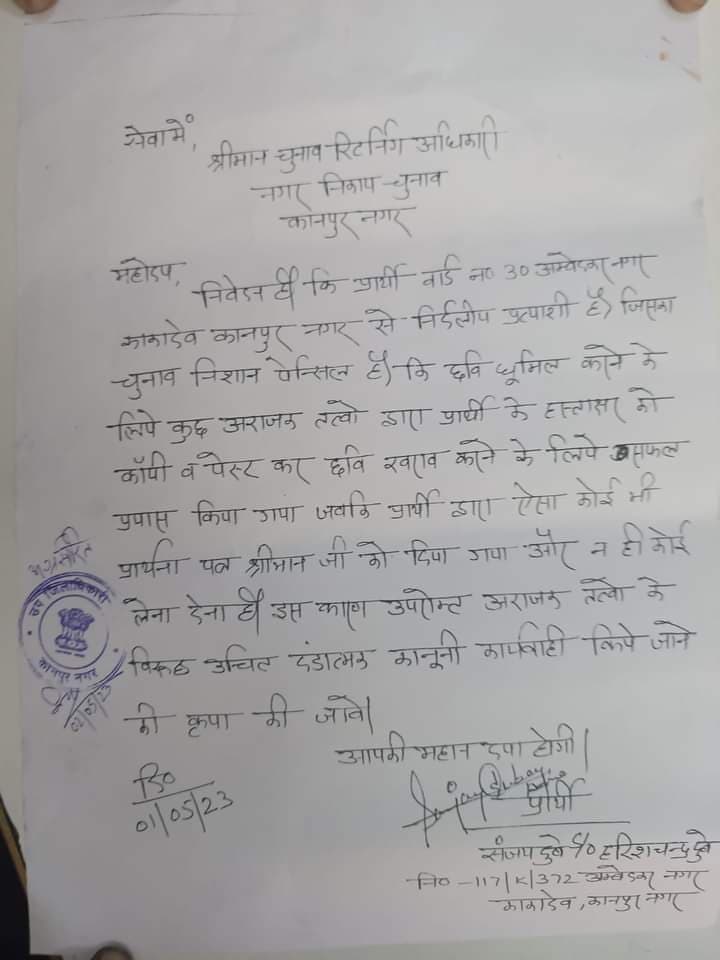 सेवामें,
श्रीमान चुनाव रिटर्निंग अधिकारी
नगर निकाय चुनाव
कानपुर नगर
महोदय,
निवेदन है कि प्रार्थी वार्ड न० 30 अम्बेडकर नगर
काकादेव कानपुर नगर से निर्दलीय प्रत्याशी है, जिसका
चुनाव निशान पेन्सिल है, कि छवि धूमिल करने के
लिये कुछ अराजक तत्वो द्वारा प्रार्थी के हस्ताक्षर को
कॉपी व पेस्ट कर छवि खराब करने के लिये असफल
प्रयास किया गया जबकि प्रार्थी द्वारा ऐसा कोई भी
प्रार्थना पत्र श्रीमान जी को दिया गया और न ही कोई
लेना देना है। इस कारण उपरोक्त अराजक तत्वो के
विरूद्ध उचित दंडात्मक कानूनी कार्यवाही किये जाने
की कृपा की जावे।
आपकी महान दया होगी।
अग्रसारित
उप जिलाधिकारी
कानपुर नगर
02/05/23
दि०
01/05/23
प्रार्थी
संजय दुबे S/o हरिशचन्द्र दुबे
नि० - 117/K/372 अम्बेडकर नगर
काकादेव, कानपुर नगर